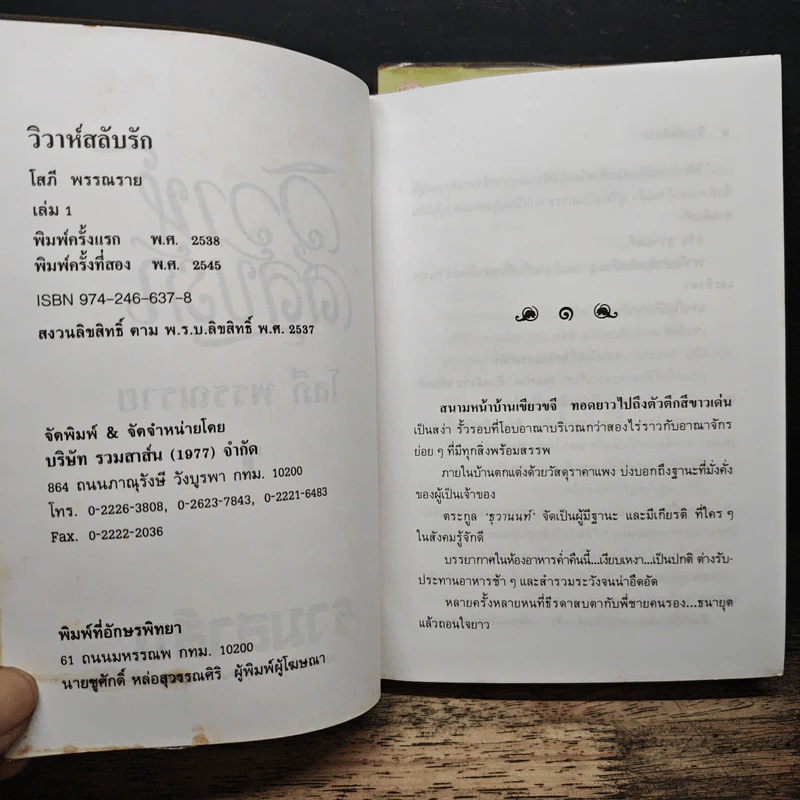 วิวาห์สลับรัก
โสภี พรรณราย
เล่ม 1
พิมพ์ครั้งแรก พ.ศ. 2538
พิมพ์ครั้งที่สอง พ.ศ. 2545
ISBN 974-246-637-8
สงวนลิขสิทธิ์ ตาม พ.ร.บ.ลิขสิทธิ์ พ.ศ. 2537
จัดพิมพ์ & จัดจำหน่ายโดย
บริษัท รวมสาส์น (1977) จำกัด
864 ถนนภาณุรังษี วังบูรพา กทม. 10200
โทร. 0-2226-3808, 0-2623-7843, 0-2221-6483
Fax. 0-2222-2036
พิมพ์ที่อักษรพิทยา
61 ถนนมหรรณพ กทม. 10200
นายชูศักดิ์ หล่อสุวรรณศิริ ผู้พิมพ์ผู้โฆษณา
๑
สนามหน้าบ้านเขียวขจี ทอดยาวไปถึงตัวตึกสีขาวเด่น
เป็นสง่า รั้วรอบที่โอบอาณาบริเวณกว่าสองไร่ราวกับอาณาจักร
ย่อย ๆ ที่มีทุกสิ่งพร้อมสรรพ
ภายในบ้านตกแต่งด้วยวัสดุราคาแพง บ่งบอกถึงฐานะที่มั่งคั่ง
ของผู้เป็นเจ้าของ
ตระกูล ‘ธุวานนท์’ จัดเป็นผู้มีฐานะ และมีเกียรติ ที่ใคร ๆ
ในสังคมรู้จักดี
บรรยากาศในห้องอาหารค่ำคืนนี้...เงียบเหงา...เป็นปกติ ต่างรับ-
ประทานอาหารช้า ๆ และสำรวมระวังจนน่าอึดอัด
หลายครั้งหลายหนที่ธีรดาสบตากับพี่ชายคนรอง...ธนายุต
แล้วถอนใจยาว